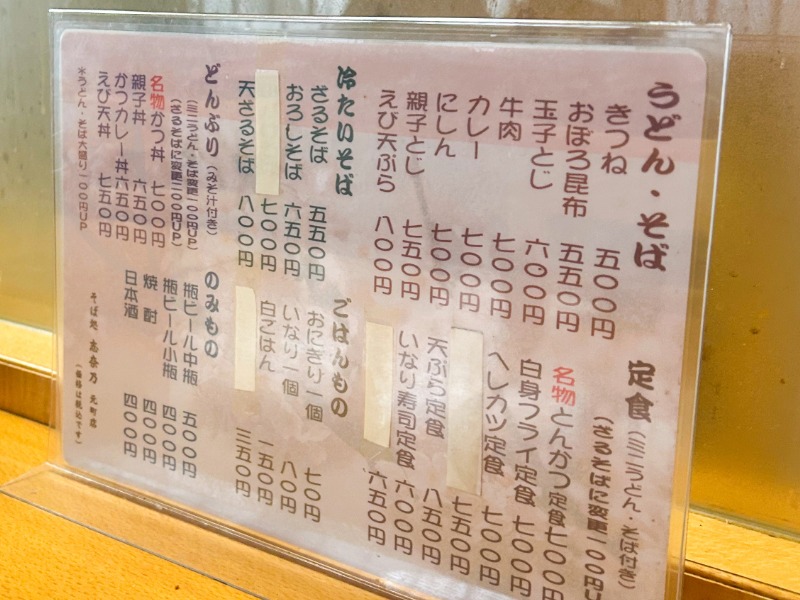 うどん・そば
きつね 五〇〇円
おぼろ昆布 五五〇円
玉子とじ 六〇〇円
牛肉 七〇〇円
カレー 七〇〇円
にしん 七〇〇円
親子とじ 七五〇円
えび天ぷら 八〇〇円
定食(ミニうどん・そば付き)
(ざるそばに変更一〇〇円U
名物とんかつ定食七〇〇円
白身フライ定食 七〇〇円
ヘレカツ定食 七〇〇円
七五〇円
天ぷら定食 八五〇円
いなり寿司定食 六〇〇円
六五〇円
冷たいそば
ざるそば 五五〇円
おろしそば 六五〇円
七〇〇円
天ざるそば 八〇〇円
ごはんもの
おにぎり一個 七〇円
いなり一個 八〇円
白ごはん 一五〇円
三五〇円
どんぶり(みそ汁付き)
(ミニうどん・そば変更一〇〇円UP)
(ざるそばに変更二〇〇円UP)
名物かつ丼 七〇〇円
親子丼 六五〇円
かつカレー丼 六五〇円
えび天丼 七五〇円
*うどん・そば大盛り一〇〇円UP
のみもの
瓶ビール中瓶 五〇〇円
瓶ビール小瓶 四〇〇円
焼酎 四〇〇円
日本酒 四〇〇円
そば処 志奈乃 元町店
(価格は税込です)